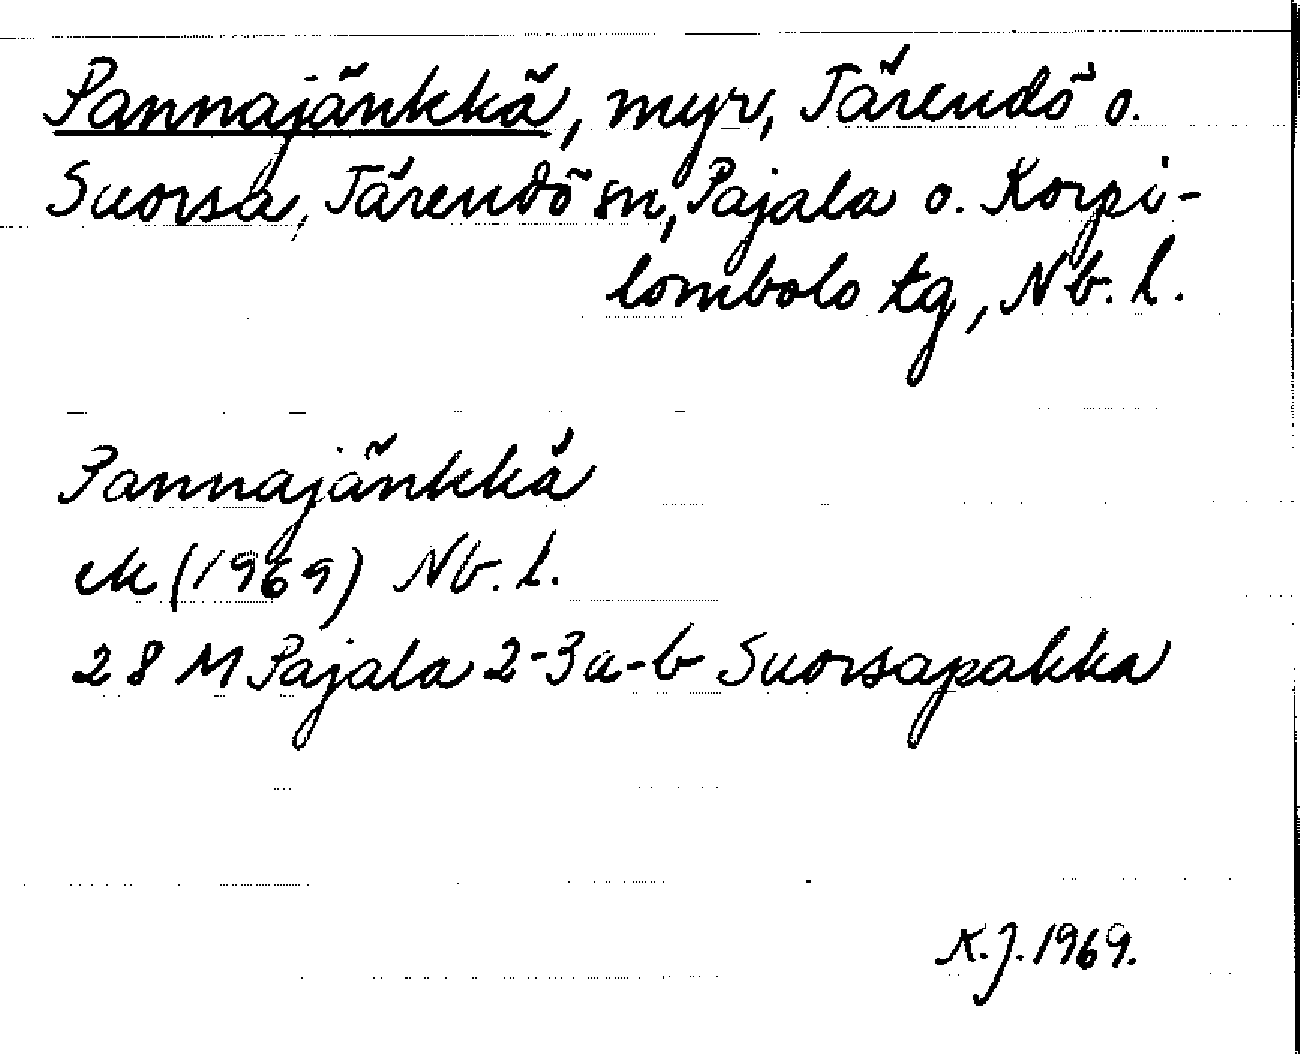 Pannajänkkä, myr, Tärendö o.
Suorsa, Tärendö sn, Pajala o. Korpi-
lombolo tg, Nb. l.
Pannajänkkä
ek (1969) Nb. l.
28 M Pajala 2-3a-b Suorsapakka
K.J. 1969.